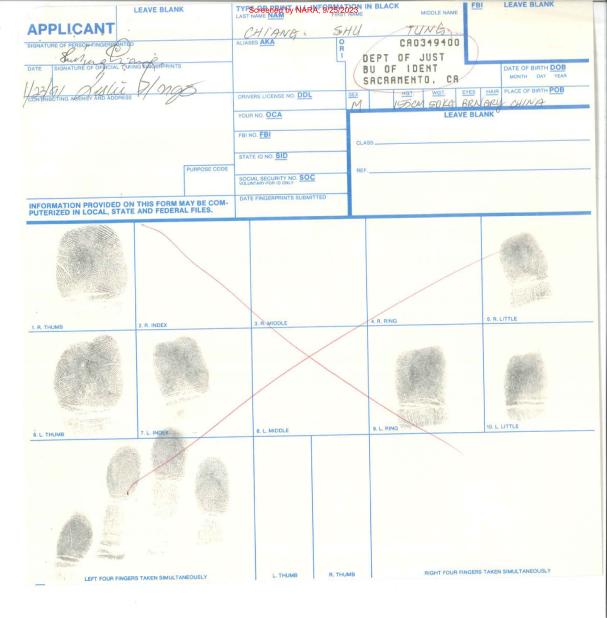 LEAVE BLANK
TYPE OR PRINT ALL INFORMATION IN BLACK
Screened by NARA, 9/25/2023
FBI
LEAVE BLANK
APPLICANT
LAST NAME NAM
FIRST NAME
MIDDLE NAME
CHIANG. SHU TUNG.
SIGNATURE OF PERSON FINGERPRINTED
ALIASES AKA
ORI
CA0349400
DEPT OF JUST
BU OF IDENT
SACRAMENTO, CA
DATE OF BIRTH DOB
MONTH DAY YEAR
DATE
SIGNATURE OF OFFICIAL TAKING FINGERPRINTS
CONTRIBUTING AGENCY AND ADDRESS
DRIVERS LICENSE NO. DDL
SEX
HGT
WGT
EYES
HAIR
PLACE OF BIRTH POB
M
155CM
CHINA
YOUR NO. OCA
LEAVE BLANK
FBI NO. FBI
CLASS
STATE ID NO. SID
PURPOSE CODE
REF.
SOCIAL SECURITY NO. SOC
VOLUNTARY-FOR ID ONLY
DATE FINGERPRINTS SUBMITTED
INFORMATION PROVIDED ON THIS FORM MAY BE COM-
PUTERIZED IN LOCAL, STATE AND FEDERAL FILES.
1. R. THUMB
2. R. INDEX
3. R. MIDDLE
4. R. RING
5. R. LITTLE
6. L. THUMB
7. L. INDEX
8. L. MIDDLE
9. L. RING
10. L. LITTLE
LEFT FOUR FINGERS TAKEN SIMULTANEOUSLY
L. THUMB
R. THUMB
RIGHT FOUR FINGERS TAKEN SIMULTANEOUSLY